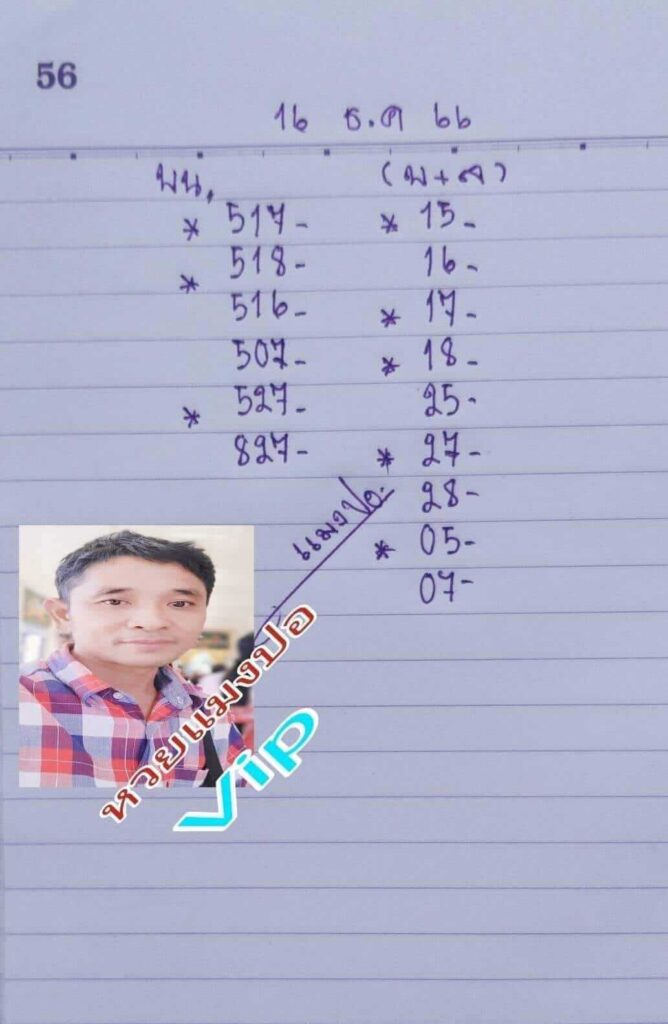 56
16 ธ.ค 66
บน. (บ+ล)
* 517- * 15-
518- 16-
*
516- * 17-
507- * 18-
* 527- 25-
827- * 27-
28-
* 05-
07-
แมงปอ
หวยแมงปอ
Vip